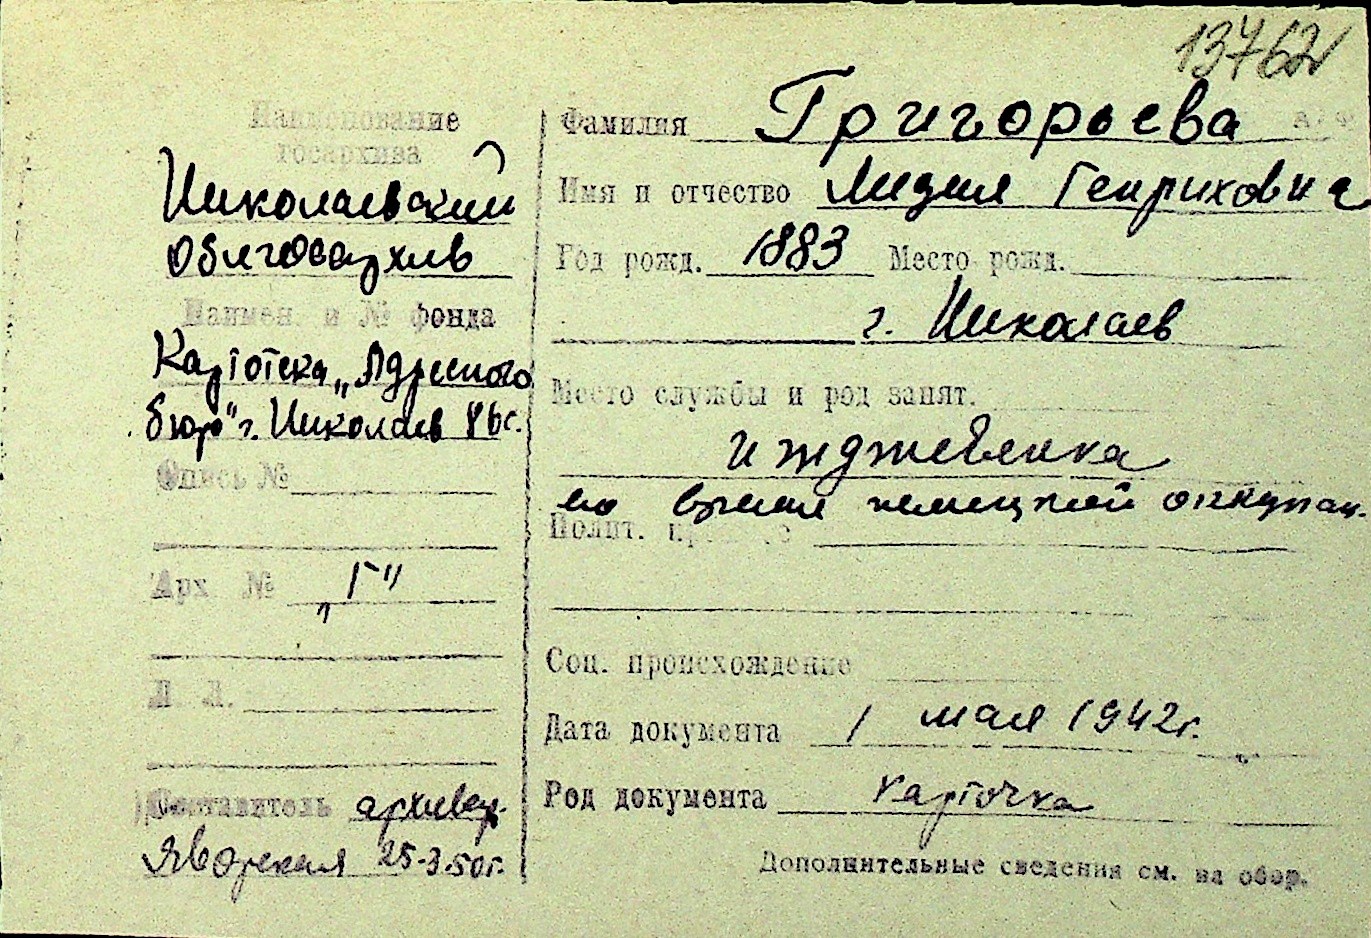 13762
Наименование
госархива
Николаевский
облгосархив
Наимен. и № фонда
Картотека „Адресного
бюро" г. Николаев
Опись №
Арх №
„Г"
Л Л.
Составитель архивар.
Яворская 25-3-50г.
Фамилия Григорьева
Имя и отчество Лидия Генриховна
Год рожд. 1883 Место рожд.
г. Николаев
Место службы и род занят.
иждживенка
во время немецкой оккупац.
Полит.
Соц. происхождение
Дата документа 1 мая 1942г.
Род документа карточка
Дополнительные сведения см. на обор.